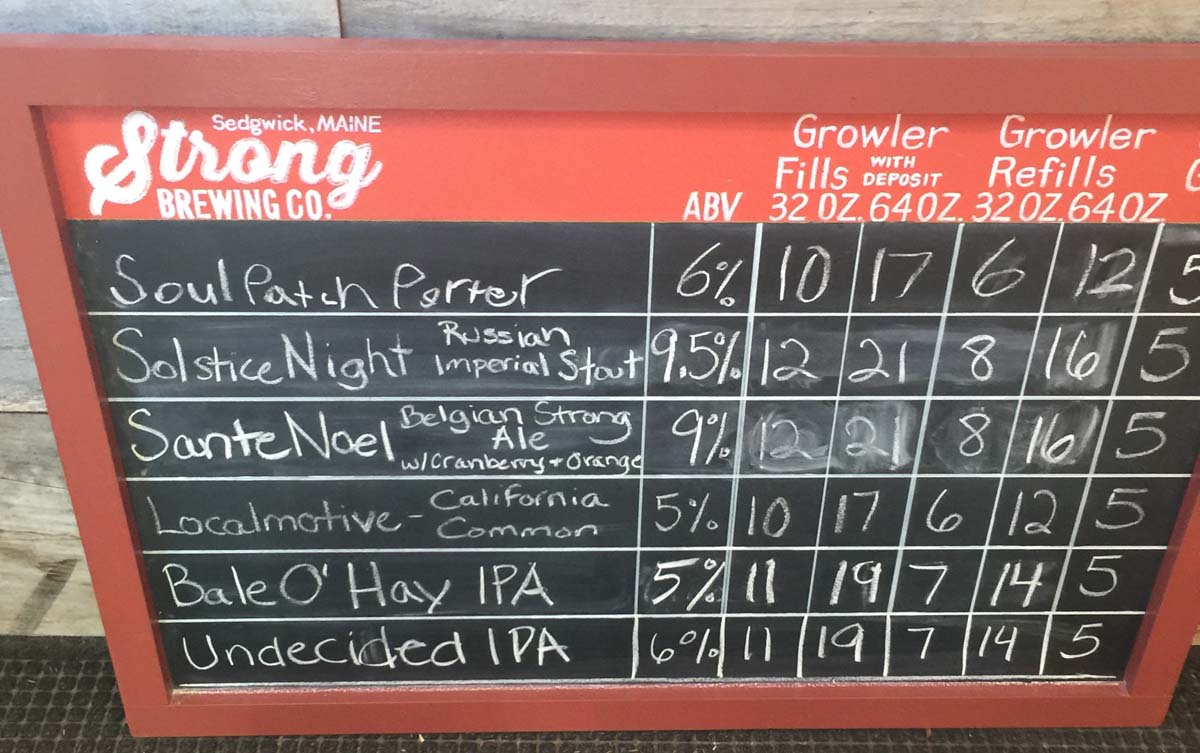 Sedgwick, MAINE
Strong
BREWING CO.
Growler
Fills WITH DEPOSIT
Growler
Refills
ABV 32 OZ. 64 OZ. 32 OZ. 64 OZ.
Soul Patch Porter 6% 10 17 6 12 5
Solstice Night Russian Imperial Stout 9.5% 12 21 8 16 5
Sante Noel Belgian Strong Ale w/Cranberry + Orange 9% 12 21 8 16 5
Localmotive - California Common 5% 10 17 6 12 5
Bale O' Hay IPA 5% 11 19 7 14 5
Undecided IPA 6% 11 19 7 14 5